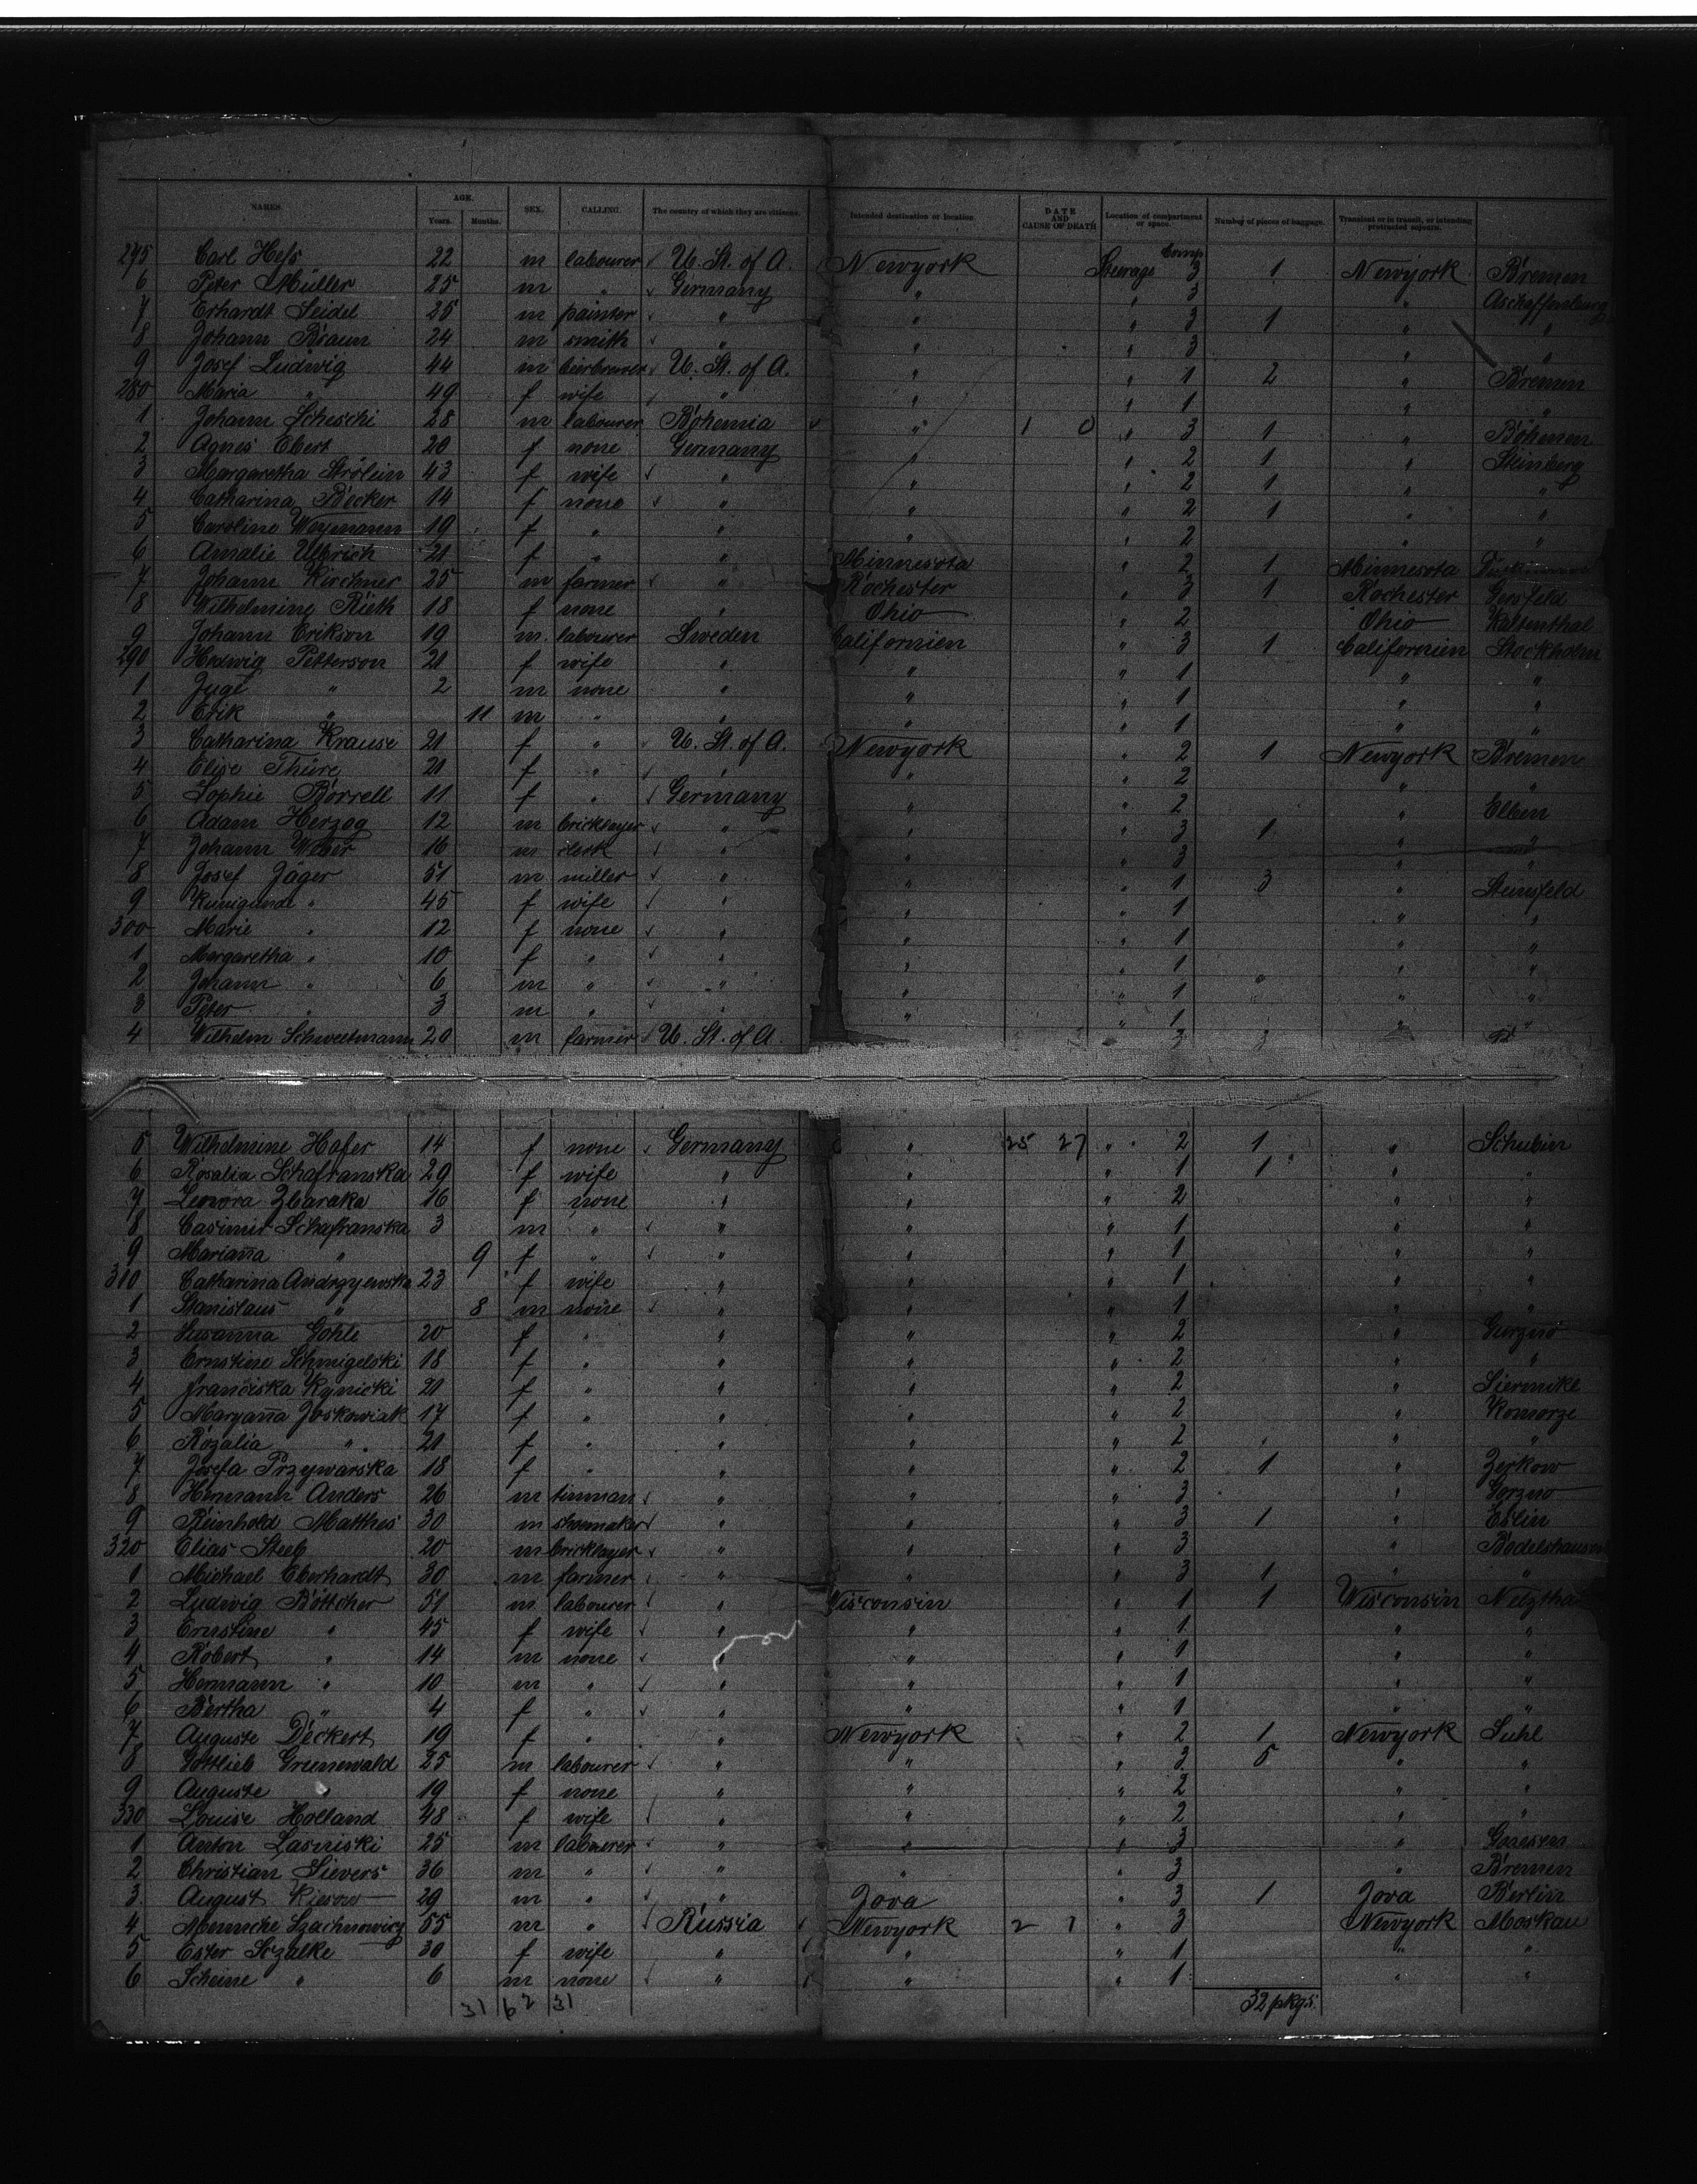 NAMES. AGE. Years. Months. SEX. CALLING. The country of which they are citizens. Intended destination or location. DATE AND CAUSE OF DEATH Location of compartment or space. Number of pieces of baggage. Transient or in transit, or intending protracted sojourn.
295 Carl Hess 22 m labourer U. St. of A. Newyork Steerage Comp 3 1 Newyork Bremen
6 Peter Müller 25 m " Germany " " 3 " Aschaffenburg
7 Erhardt Seidel 25 m painter " " " 3 1 " "
8 Johann Braun 24 m smith " " " 3 " "
9 Josef Ludwig 44 m bierbrewer U. St. of A. " " 1 2 " Bremen
280 Maria " 49 f wife " " " 1 " "
1 Johann Scheschi 28 m labourer Bohemia " 1 0 " 3 1 " Böhmen
2 Agnes Ebert 20 f none Germany " " 2 1 " Steinberg
3 Margaretha Strölein 43 f wife " " " 2 1 " "
4 Catharina Becker 14 f none " " " 2 1 " "
5 Caroline Weymann 19 f " " " " 2 " "
6 Amalie Ulbrich 21 f " " Minnesota " 2 1 Minnesota
7 Johann Kirchner 25 m farmer " Rochester " 3 1 Rochester Gersfeld
8 Wilhelmine Rieth 18 f none " Ohio " 2 Ohio Kaltenthal
9 Johann Erikson 19 m labourer Sweden Californien " 3 1 Californien Stockholm
290 Hedwig Petterson 21 f wife " " " 1 " "
1 Zyge " 2 m none " " " 1 " "
2 Erik " 11 m " " " " 1 " "
3 Catharina Krause 21 f " U. St. of A. Newyork " 2 1 Newyork Bremen
4 Elise Thüre 21 f " " " " 2 " "
5 Sophie Borrell 11 f " Germany " " 2 " Elben
6 Adam Herzog 12 m bricklayer " " " 3 1 "
7 Johann Weber 16 m clerk " " " 3 "
8 Josef Jäger 51 m miller " " " 1 3 " Steinsfeld
9 Kunigunde " 45 f wife " " " 1 " "
300 Marie " 12 f none " " " 1 " "
1 Margaretha " 10 f " " " " 1 " "
2 Johann " 6 m " " " " 1 " "
3 Peter " 3 m " " " " 1 " "
4 Wilhelm Schweetmann 20 m farmer U. St. of A. 3 3
5 Wilhelmine Hafer 14 f none Germany " 25 27 " 2 1 " Schubin
6 Rosalia Schafranska 29 f wife " " " 1 1 " "
7 Leonora Zbaraka 16 f none " " " 2 " "
8 Casimir Schafranska 3 m " " " " 1 " "
9 Marianna " 9 f " " " " 1 " "
310 Catharina Andrzyewska 23 f wife " " " 1 " "
1 Stanislaus " 8 m none " " " 1 " "
2 Susanna Gohle 20 f " " " " 2 " Gurzno
3 Ernstine Schmigelski 18 f " " " " 2 " "
4 Franciska Kynicki 21 f " " " " 2 " Siernike
5 Maryanna Joskowiak 17 f " " " " 2 " Komorze
6 Rozalia " 21 f " " " " 2 " "
7 Josefa Przywarska 18 f " " " " 2 1 " Zerkow
8 Hermann Anders 26 m tinman " " " 3 " Gorzno
9 Reinhold Matthes 30 m shoemaker " " " 3 1 " Eslin
320 Elias Steeb 20 m bricklayer " " " 3 " Bodelshausen
1 Michael Eberhardt 30 m farmer " " " 3 1 " "
2 Ludwig Böttcher 51 m labourer " Wisconsin " 1 1 Wisconsin Netzthal
3 Ernstine " 45 f wife " " " 1 " "
4 Robert " 14 m none " " " 1 " "
5 Hermann " 10 m " " " " 1 " "
6 Bertha " 4 f " " " " 1 " "
7 Auguste Deckert 19 f " " Newyork " 2 1 Newyork Suhl
8 Gottlieb Grunewald 25 m labourer " " " 3 5 " "
9 Auguste " 19 f none " " " 2 " "
330 Louise Holland 48 f wife " " " 2 " "
1 Anton Lasniski 25 m labourer " " " 3 " Gnesen
2 Christian Sievers 36 m " " " " 3 " Bremen
3 August Kiesow 29 m " " Jova " 3 1 Jova Berlin
4 Memsche Szachnowicz 55 m " Russia Newyork 2 1 " 3 Newyork Moskau
5 Ester Srzalke 30 f wife " " " 1 " "
6 Scheine " 6 m none " " " 1 " "
31 62 31 32 pkgs.